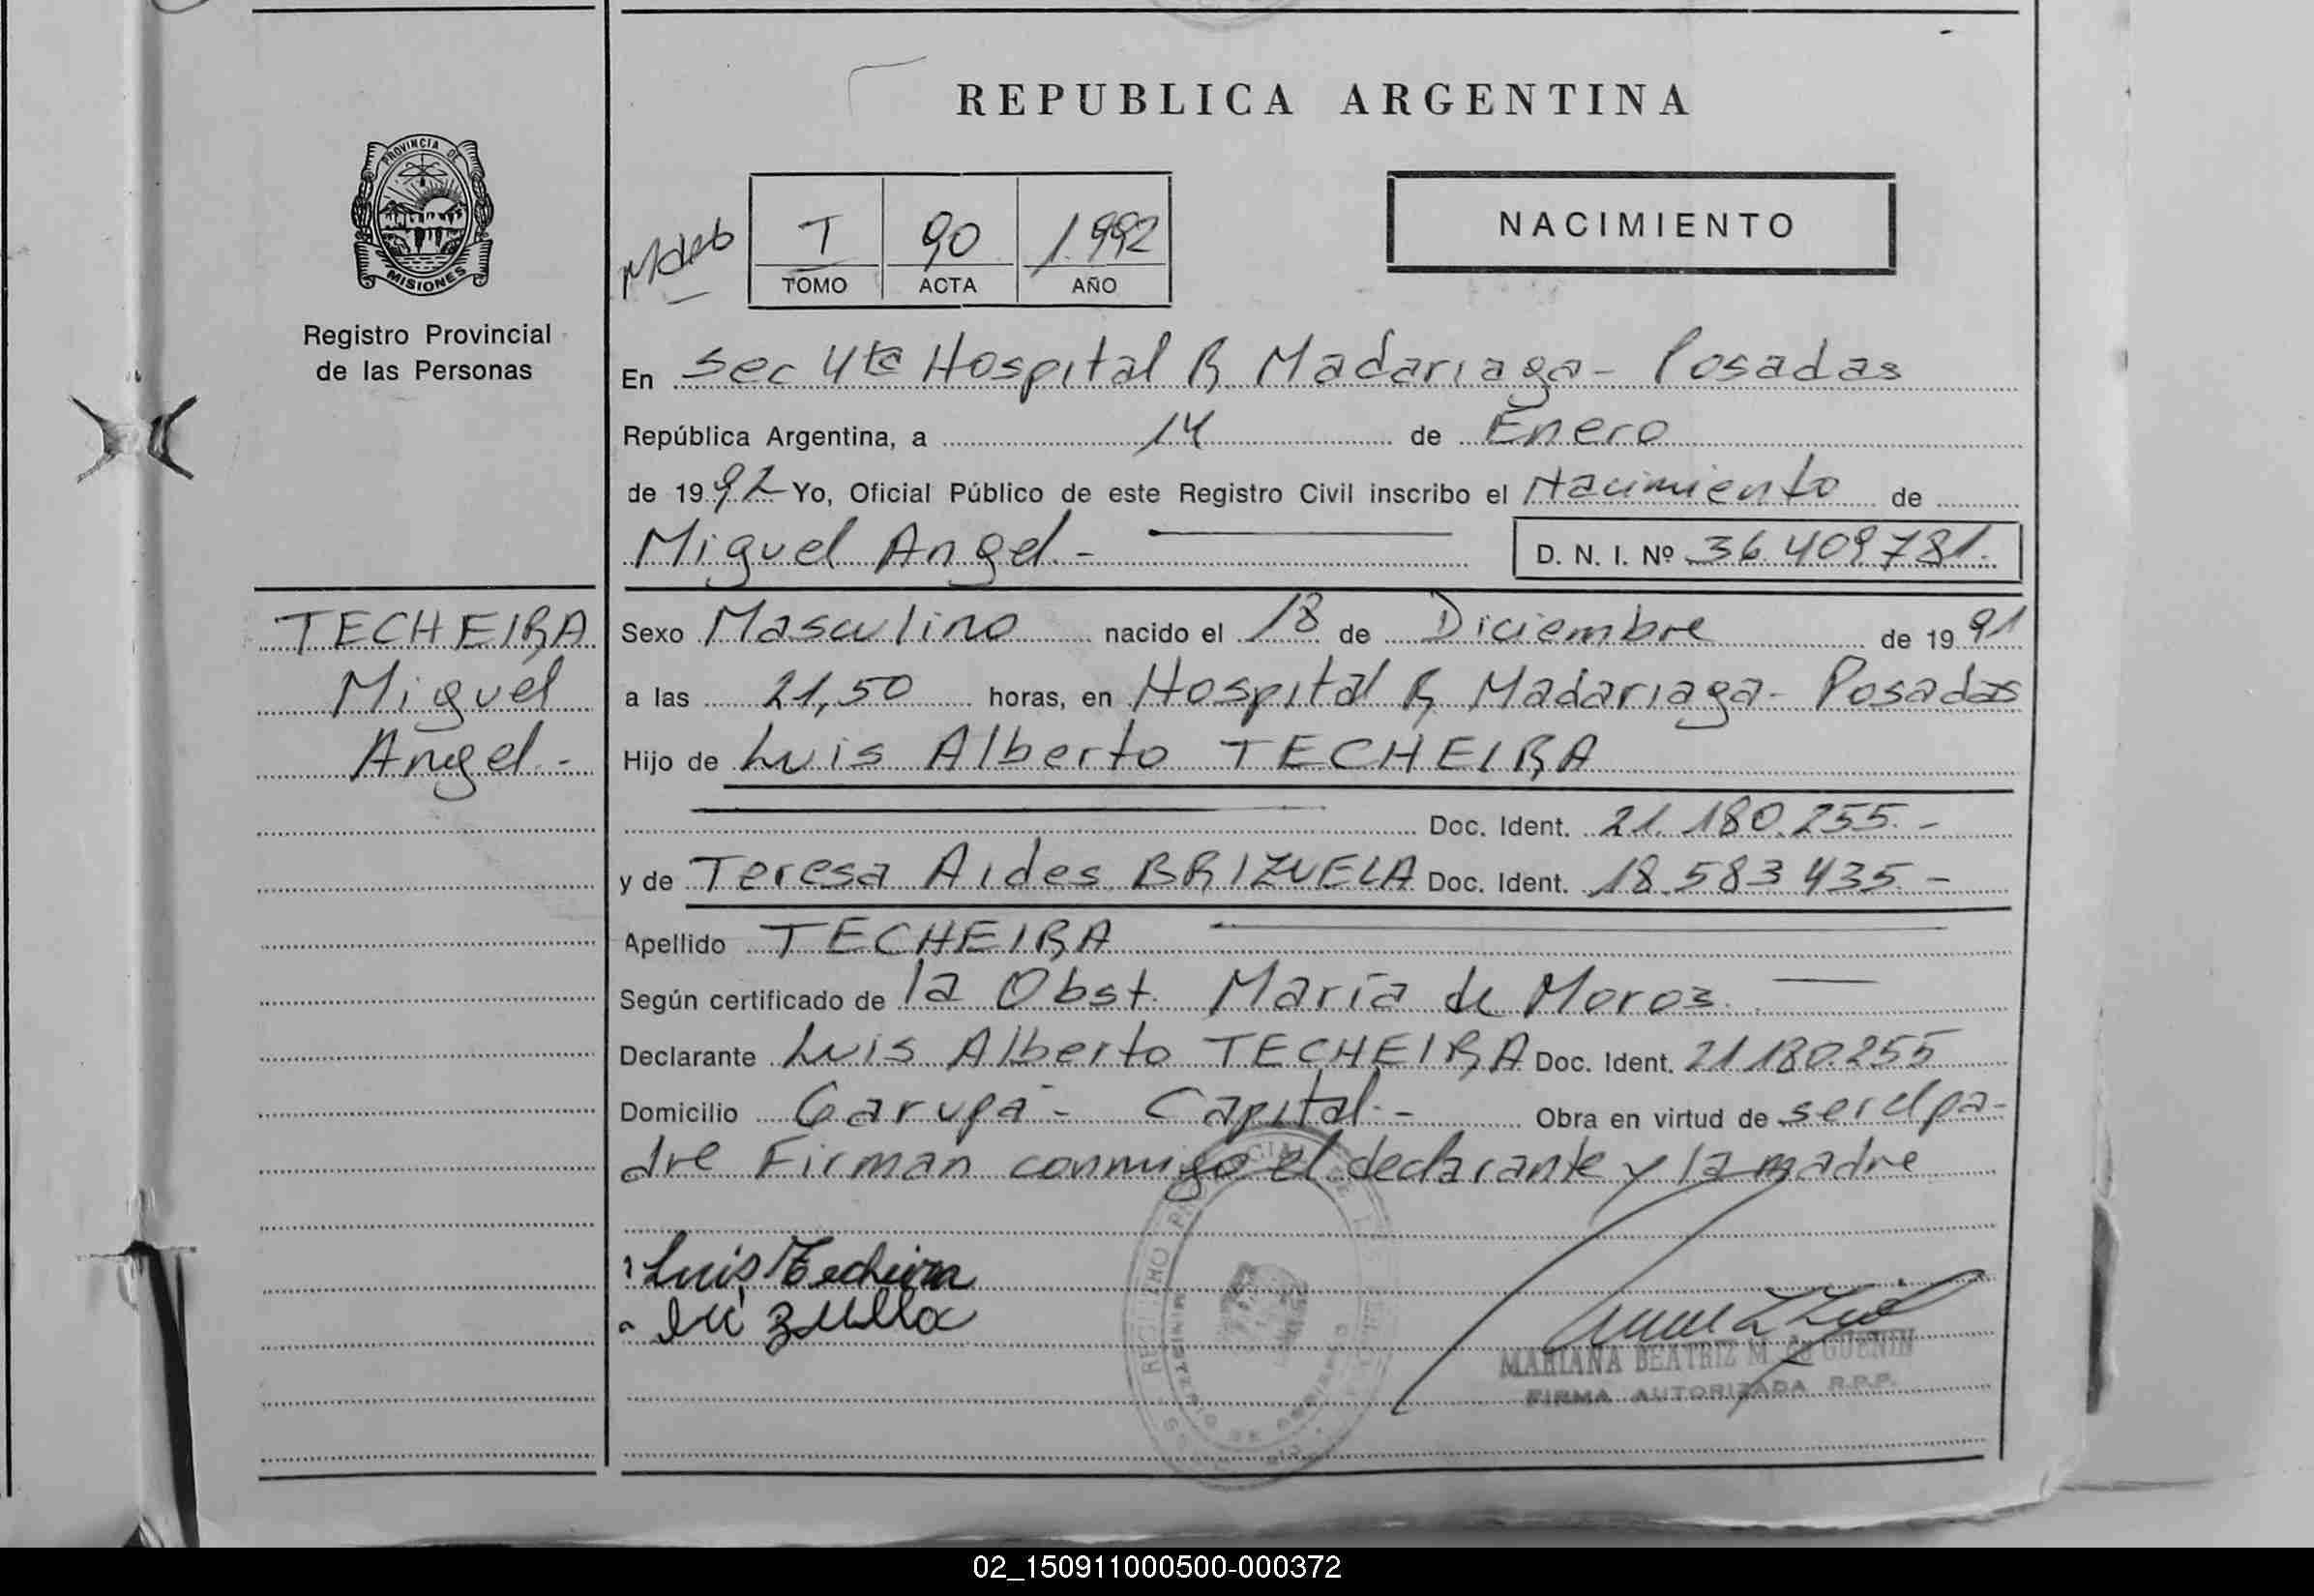 REPUBLICA ARGENTINA
PROVINCIA DE
MISIONES
Registro Provincial
de las Personas
T 90 1.992
TOMO ACTA AÑO
NACIMIENTO
En Sec 4ta Hospital R Madariaga - Posadas
República Argentina, a 14 de Enero
de 1992 Yo, Oficial Público de este Registro Civil inscribo el Nacimiento de
Miguel Angel -
D. N. I. Nº 36.409.781.
TECHEIRA
Miguel
Angel -
Sexo Masculino nacido el 18 de Diciembre de 1991
a las 21,50 horas, en Hospital R Madariaga - Posadas
Hijo de Luis Alberto TECHEIRA
Doc. Ident. 21.180.255.-
y de Teresa Aides BRIZUELA Doc. Ident. 18.583.435.-
Apellido TECHEIRA
Según certificado de la Obst. María de Moroz.
Declarante Luis Alberto TECHEIRA Doc. Ident. 21.180.255
Domicilio Garupá - Capital.- Obra en virtud de ser el pa-
dre Firman conmigo el declarante y la madre
Luis Techeira
MARIANA BEATRIZ M. de GUENIN
FIRMA AUTORIZADA R.P.P.
02_150911000500-000372